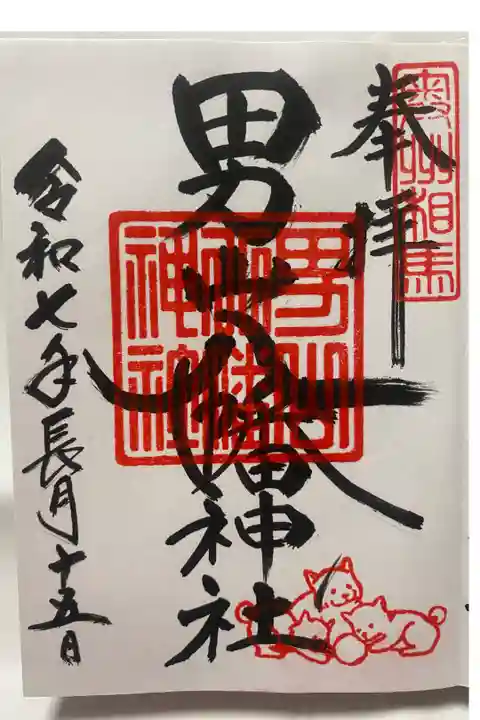 奉拝
奥州相馬
男山八幡神社
男山
八幡
神社
令和七年長月十五日